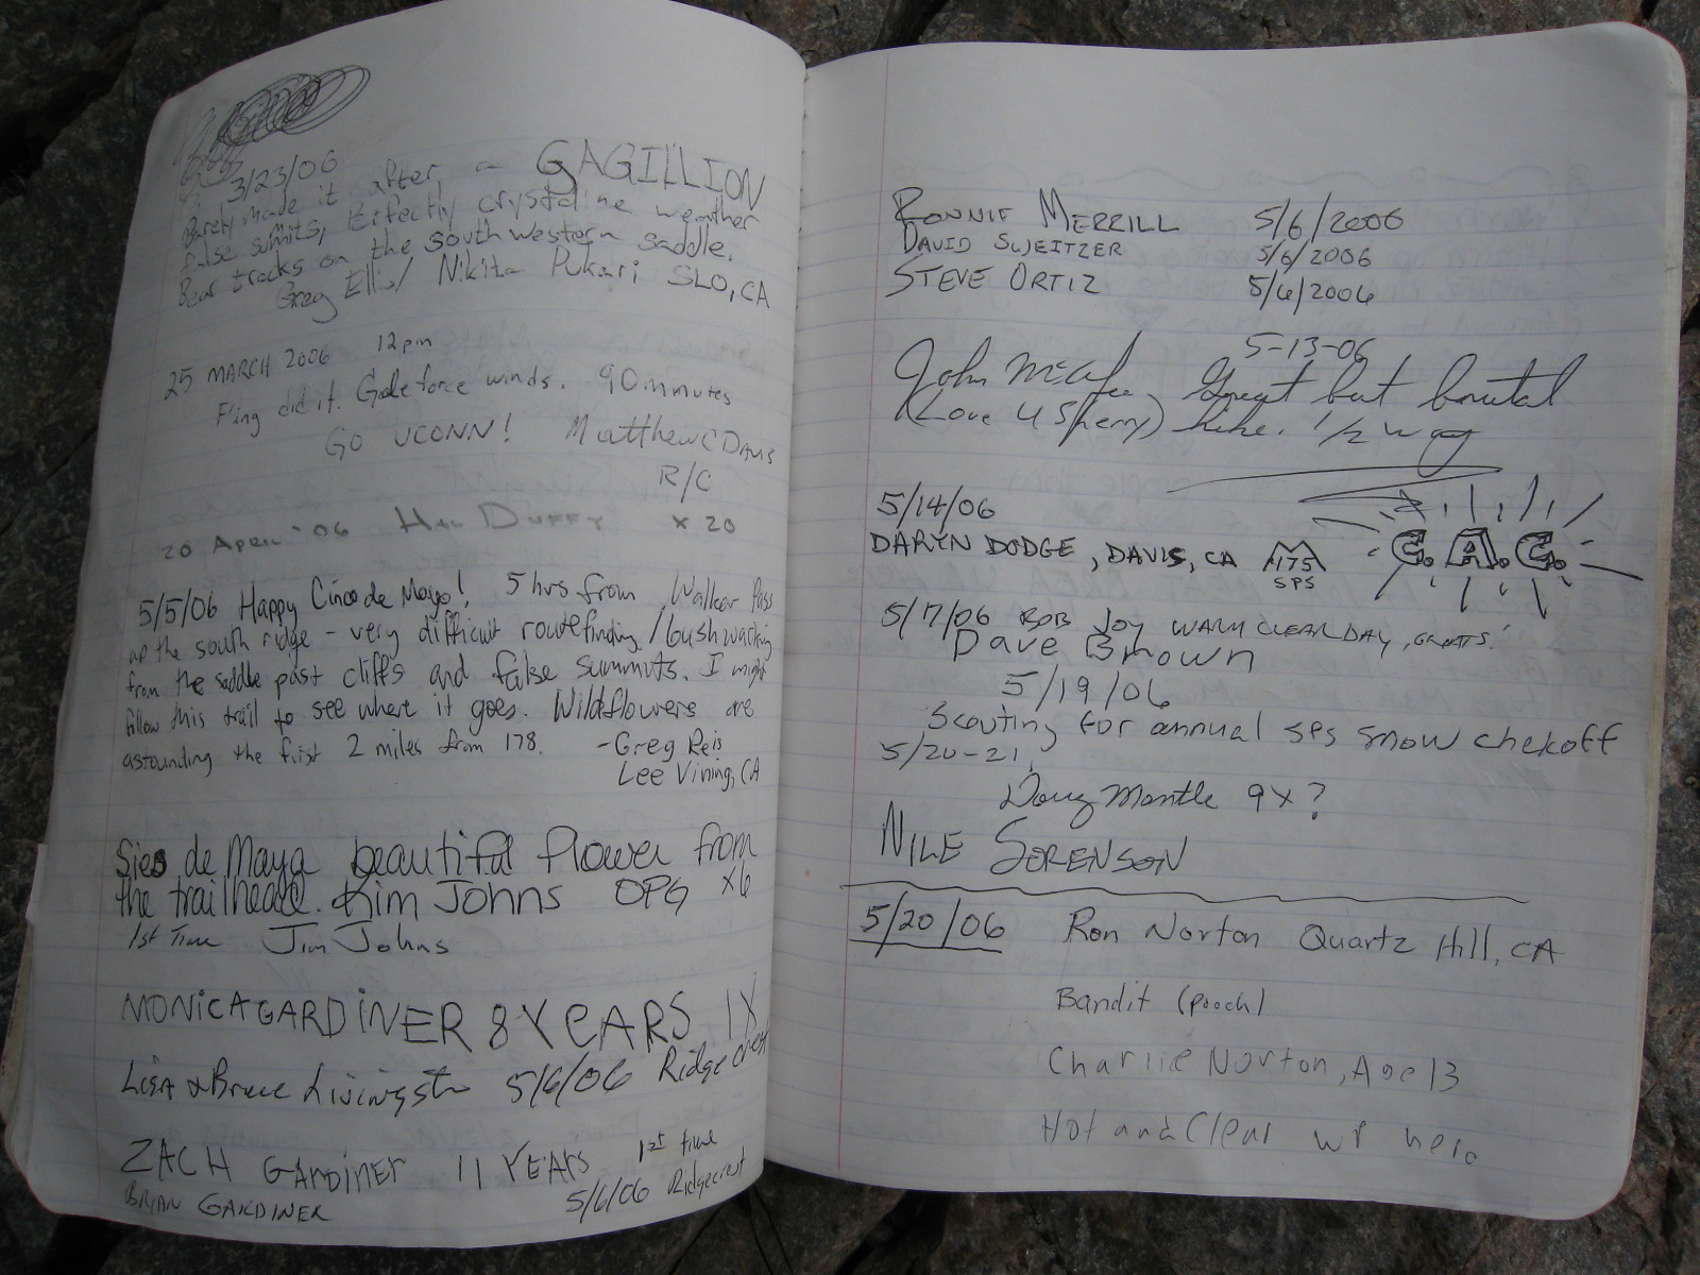 3/23/06
Barely made it after a GAGILLION
false summits, Perfectly crystaline weather
Bear tracks on the southwestern saddle.
Greg Ellis/ Nikita Pukari SLO, CA
25 MARCH 2006 12pm
F'ing did it. Gale force winds. 90 minutes
GO UCONN! Matthew C Davis
R/C
20 April '06 Hal Duffy x 20
5/5/06 Happy Cinco de Mayo! 5 hrs from Walker Pass
up the south ridge - very difficult routefinding/bushwacking
from the saddle past cliffs and false summits. I might
follow this trail to see where it goes. Wildflowers are
astounding the first 2 miles from 178. -Greg Reis
Lee Vining, CA
de Maya beautiful flower from
the trailhead. Kim Johns OPG x6
1st Time Jim Johns
MONiCA GARDiNER 8 YEARS 1X
LiSA & Bruce Livingst 5/6/06 Ridgecrest
ZACH GARDiNER 11 YEARS 1st time
BRIAN GARDINER 5/6/06 Ridgecrest
RONNIE MERRILL 5/6/2006
DAVID SWEITZER 5/6/2006
STEVE ORTIZ 5/6/2006
5-13-06
John McAfee Great but brutal
(Love U Sherry) hike. 1/2 way
5/14/06
DARYN DODGE, DAVIS, CA 175 SPS C.A.C.
5/17/06 BOB JOY WARM CLEAR DAY,
Dave Brown
5/19/06
Scouting for annual SPS snow chekoff
5/20-21,
Doug Mantle 9x?
NILE SORENSON
5/20/06 Ron Norton Quartz Hill, CA
Bandit (pooch)
Charlie Norton, Age 13
Hot and Clear up here